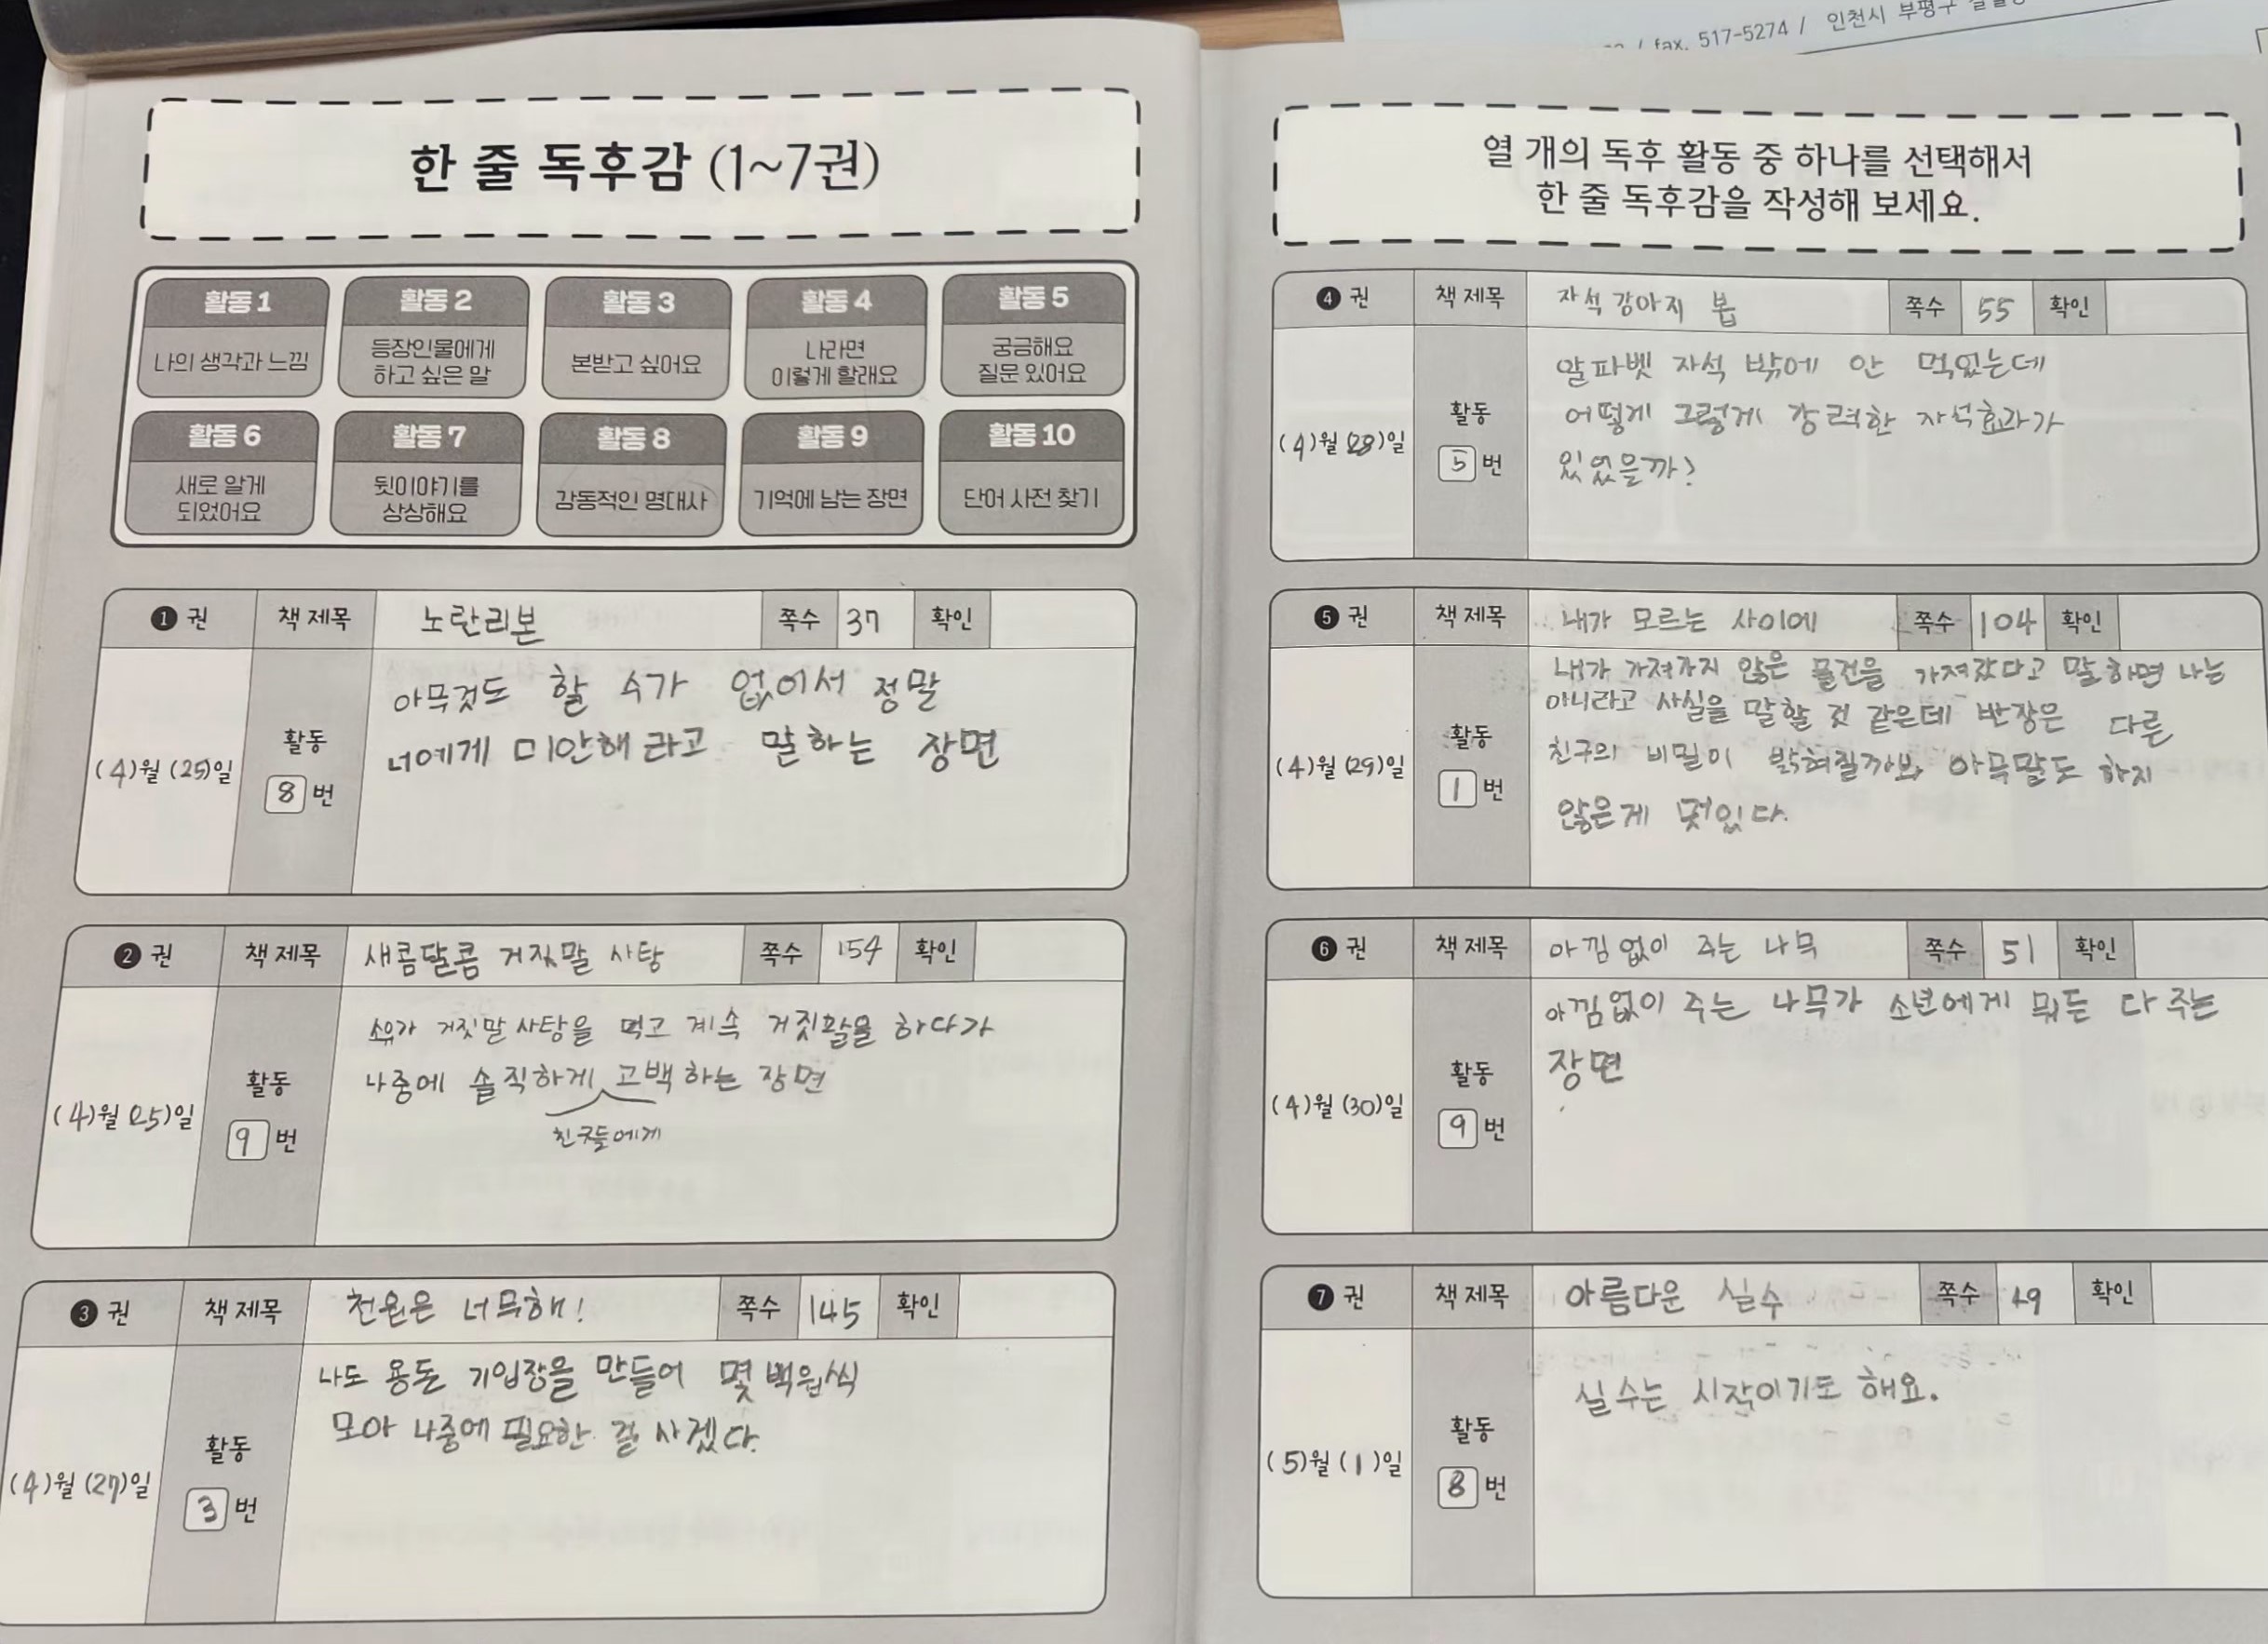 fax. 517-5274 / 인천시 부평구
한 줄 독후감 (1~7권)
활동 1
나의 생각과 느낌
활동 2
등장인물에게
하고 싶은 말
활동 3
본받고 싶어요
활동 4
나라면
이렇게 할래요
활동 5
궁금해요
질문 있어요
활동 6
새로 알게
되었어요
활동 7
뒷이야기를
상상해요
활동 8
감동적인 명대사
활동 9
기억에 남는 장면
활동 10
단어 사전 찾기
1 권 책 제목 노란리본 쪽수 37 확인
(4)월 (25)일
활동
8 번
아무것도 할 수가 없어서 정말
너에게 미안해 라고 말하는 장면
2 권 책 제목 새콤달콤 거짓말 사탕 쪽수 154 확인
(4)월 (25)일
활동
9 번
소유가 거짓말 사탕을 먹고 계속 하다가
나중에 솔직하게 고백 하는 장면
친구들에게
3 권 책 제목 천원은 너무해! 쪽수 145 확인
(4)월 (27)일
활동
3 번
나도 용돈 기입장을 만들어 몇 백원씩
모아 나중에 필요한 걸 사겠다.
열 개의 독후 활동 중 하나를 선택해서
한 줄 독후감을 작성해 보세요.
4 권 책 제목 자석 강아지 봅 쪽수 55 확인
(4)월 (28)일
활동
5 번
알파벳 자석 밖에 안 먹었는데
어떻게 그렇게 강력한 자석효과가
있었을까?
5 권 책 제목 내가 모르는 사이에 쪽수 104 확인
(4)월 (29)일
활동
1 번
내가 가져가지 않은 물건을 가져갔다고 말하면 나는
아니라고 사실을 말할 것 같은데 반장은 다른
친구의 비밀이 밝혀질까봐 아무말도 하지
않은게 멋있다.
6 권 책 제목 아낌없이 주는 나무 쪽수 51 확인
(4)월 (30)일
활동
9 번
아낌없이 주는 나무가 소년에게 뭐든 다 주는
장면
7 권 책 제목 아름다운 실수 쪽수 49 확인
(5)월 (1)일
활동
8 번
실수는 시작이기도 해요.